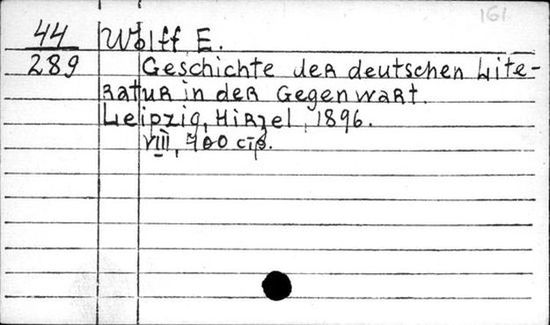 161
44 Wolff E.
289 Geschichte der deutschen Lite-
ratur in der Gegenwart.
Leipzig, Hirzel, 1896.
VIII, 400 стр.